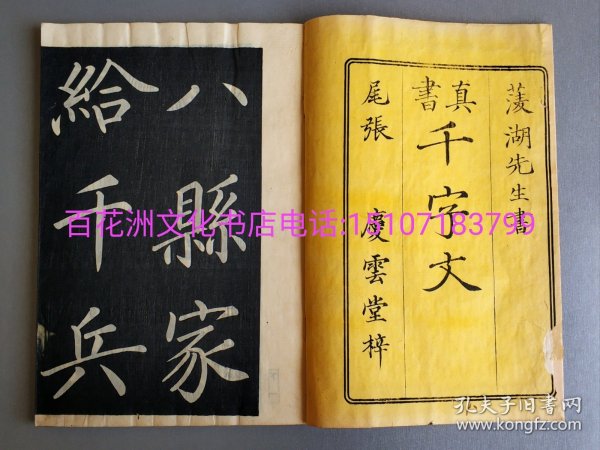 菱湖先生書
真書
千字文
尾張 慶雲堂梓
八縣家
給千兵
百花洲文化书店电话:15107183799
孔夫子旧书网
www.kongfz.com